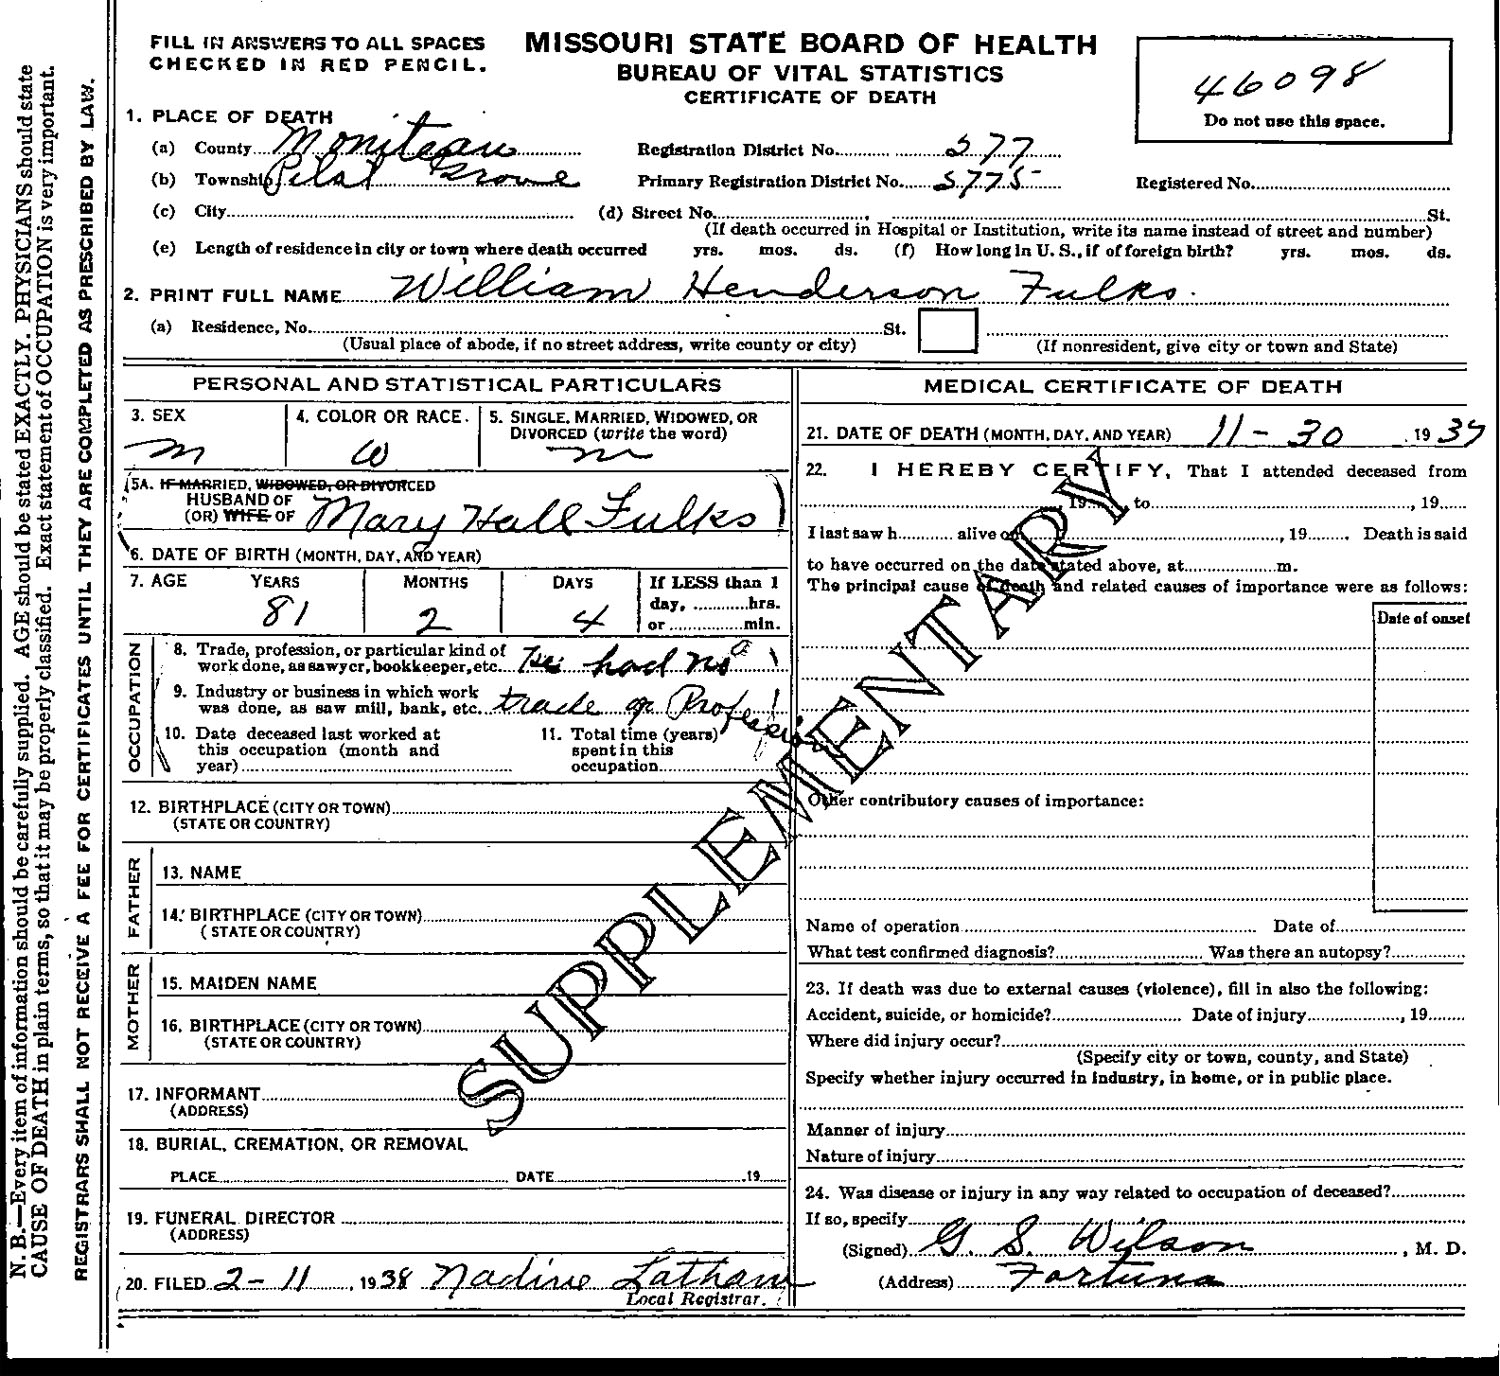 FILL IN ANSWERS TO ALL SPACES
CHECKED IN RED PENCIL.
MISSOURI STATE BOARD OF HEALTH
BUREAU OF VITAL STATISTICS
CERTIFICATE OF DEATH
46098
Do not use this space.
1. PLACE OF DEATH
(a) County Moniteau Registration District No. 577
(b) Township Pilot Grove Primary Registration District No. 5775 Registered No.
(c) City (d) Street No. St.
(If death occurred in Hospital or Institution, write its name instead of street and number)
(e) Length of residence in city or town where death occurred yrs. mos. ds. (f) How long in U. S., if of foreign birth? yrs. mos. ds.
2. PRINT FULL NAME William Henderson Fulks.
(a) Residence, No. St.
(Usual place of abode, if no street address, write county or city) (If nonresident, give city or town and State)
PERSONAL AND STATISTICAL PARTICULARS
3. SEX 4. COLOR OR RACE. 5. SINGLE, MARRIED, WIDOWED, OR
DIVORCED (write the word)
m W m
5A. IF MARRIED, WIDOWED, OR DIVORCED
HUSBAND OF
(OR) WIFE OF Mary Hall Fulks
6. DATE OF BIRTH (MONTH, DAY, AND YEAR)
7. AGE YEARS MONTHS DAYS If LESS than 1
day, hrs.
or min.
81 2 4
OCCUPATION
8. Trade, profession, or particular kind of
work done, as sawyer, bookkeeper, etc. He had no
9. Industry or business in which work
was done, as saw mill, bank, etc. trade or Profession
10. Date deceased last worked at
this occupation (month and
year)
11. Total time (years)
spent in this
occupation
12. BIRTHPLACE (CITY OR TOWN)
(STATE OR COUNTRY)
FATHER
13. NAME
14. BIRTHPLACE (CITY OR TOWN)
(STATE OR COUNTRY)
MOTHER
15. MAIDEN NAME
16. BIRTHPLACE (CITY OR TOWN)
(STATE OR COUNTRY)
17. INFORMANT
(ADDRESS)
18. BURIAL, CREMATION, OR REMOVAL
PLACE DATE 19
19. FUNERAL DIRECTOR
(ADDRESS)
20. FILED 2-11, 1938 Nadine Latham
Local Registrar.
MEDICAL CERTIFICATE OF DEATH
21. DATE OF DEATH (MONTH, DAY, AND YEAR) 11-30 1937
22. I HEREBY CERTIFY, That I attended deceased from
, 19 to , 19
I last saw h alive on , 19 Death is said
to have occurred on the date stated above, at m.
The principal cause of death and related causes of importance were as follows:
Date of onset
Other contributory causes of importance:
Name of operation Date of
What test confirmed diagnosis? Was there an autopsy?
23. If death was due to external causes (violence), fill in also the following:
Accident, suicide, or homicide? Date of injury , 19
Where did injury occur?
(Specify city or town, county, and State)
Specify whether injury occurred in industry, in home, or in public place.
Manner of injury
Nature of injury
24. Was disease or injury in any way related to occupation of deceased?
If so, specify
(Signed) G. S. Wilson , M. D.
(Address) Fortuna
SUPPLEMENTARY
N. B.—Every item of information should be carefully supplied. AGE should be stated EXACTLY. PHYSICIANS should state
CAUSE OF DEATH in plain terms, so that it may be properly classified. Exact statement of OCCUPATION is very important.
REGISTRARS SHALL NOT RECEIVE A FEE FOR CERTIFICATES UNTIL THEY ARE COMPLETED AS PRESCRIBED BY LAW.